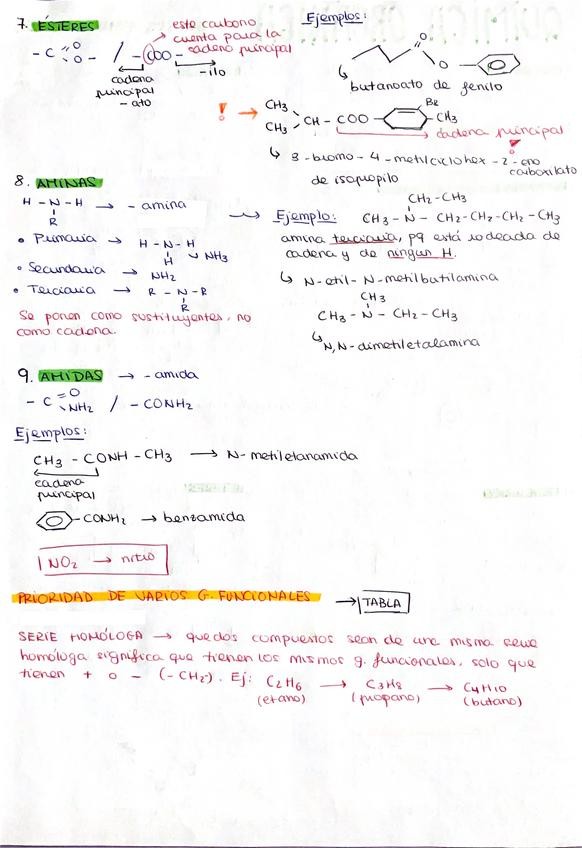 7. ÉSTERES
este carbono
cuenta para la
cadena principal
- C =O -O - / - COO -
cadena
principal
- ato
- ilo
Ejemplos:
O
O
butanoato de fenilo
! → CH3
CH3
CH - COO - - CH3
Br
cadena principal
!
↳ 3 - bromo - 4 - metilciclohex - 2 - eno
carboxilato
de isopropilo
8. AMINAS
H - N - H → - amina
R
• Primaria → H - N - H
H
NH3
• Secundaria → NH2
• Terciaria → R - N - R
R
Se ponen como sustituyentes, no
como cadena.
CH2 - CH3
Ejemplo: CH3 - N - CH2 - CH2 - CH2 - CH3
amina terciaria, pq está rodeada de
cadena y de ningun H.
↳ N-etil-N-metilbutilamina
CH3
CH3 - N - CH2 - CH3
↳ N,N-dimetiletalamina
9. AMIDAS → - amida
- C =O -NH2 / - CONH2
Ejemplos:
CH3 - CONH - CH3 → N-metiletanamida
cadena
principal
- CONH2 → benzamida
NO2 → nitro
PRIORIDAD DE VARIOS G. FUNCIONALES → TABLA
SERIE HOMÓLOGA → que dos compuestos sean de una misma serie
homóloga significa que tienen los mismos g. funcionales, solo que
tienen + o - (-CH2-). Ej: C2H6 → C3H8 → C4H10
(etano) (propano) (butano)